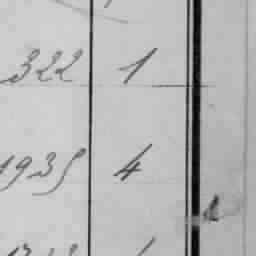 322 1
1935 4